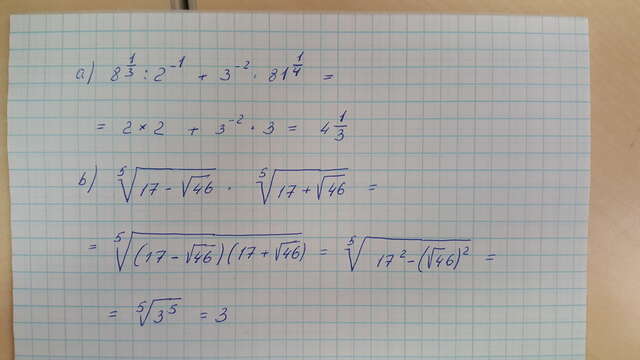 a) 8^{\frac{1}{3}} : 2^{-1} + 3^{-2} \cdot 81^{\frac{1}{4}} =
= 2 × 2 + 3^{-2} \cdot 3 = 4\frac{1}{3}
b) \sqrt[5]{17-\sqrt{46}} \cdot \sqrt[5]{17+\sqrt{46}} =
= \sqrt[5]{(17-\sqrt{46})(17+\sqrt{46})} = \sqrt[5]{17^2-(\sqrt{46})^2} =
= \sqrt[5]{3^5} = 3